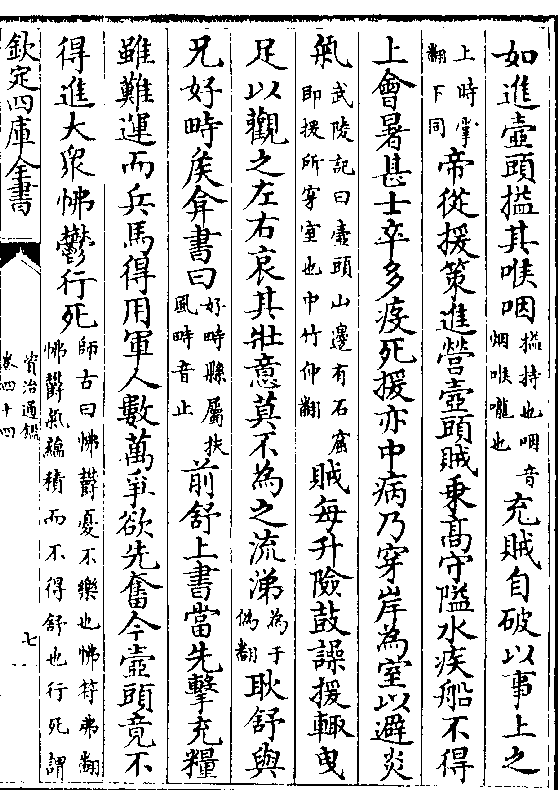 如進壺頭搤其喉咽搤持也咽音烟喉嚨也充賊自破以事上之
上時掌翻下同帝從援策進營壺頭賊乗髙守隘水疾船不得
上會暑甚士卒多疫死援亦中病乃穿岸為室以避炎
氣武陵記曰壺頭山邊有石窟即援所穿室也中竹仲翻賊每升險鼓譟援輙曳
足以觀之左右哀其壯意莫不為之流涕為于偽翻耿舒與
兄好畤侯弇書曰好畤縣屬扶風畤音止前舒上書當先擊充糧
雖難運而兵馬得用軍人數萬爭欲先奮今壺頭竟不
得進大衆怫鬱行死師古曰怫鬱憂不樂也怫符弗翻怫鬱氣蘊積而不得舒也行死謂
欽定四庫全書
資治通鑑
卷四十四
七